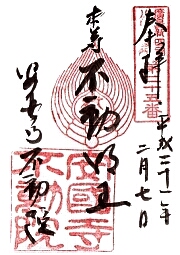 奉拝
平成二十一年
二月七日
本尊
不動明王
不動院
安國寺
不動院